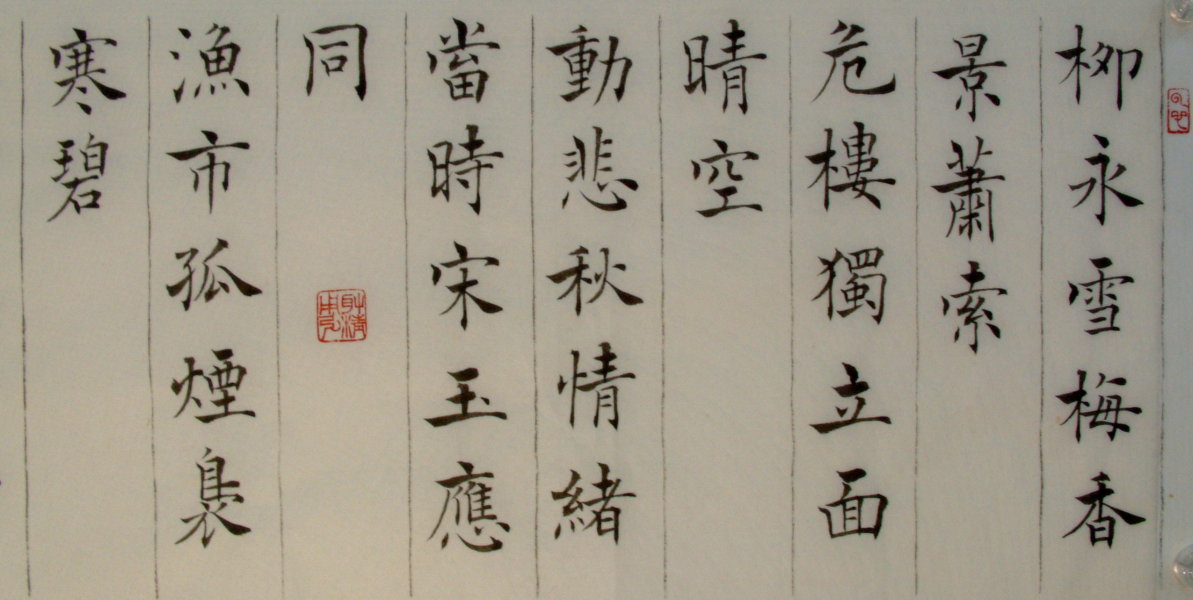 柳永雪梅香
景蕭索
危樓獨立面
晴空
動悲秋情緒
當時宋玉應
同
漁市孤煙裊
寒碧